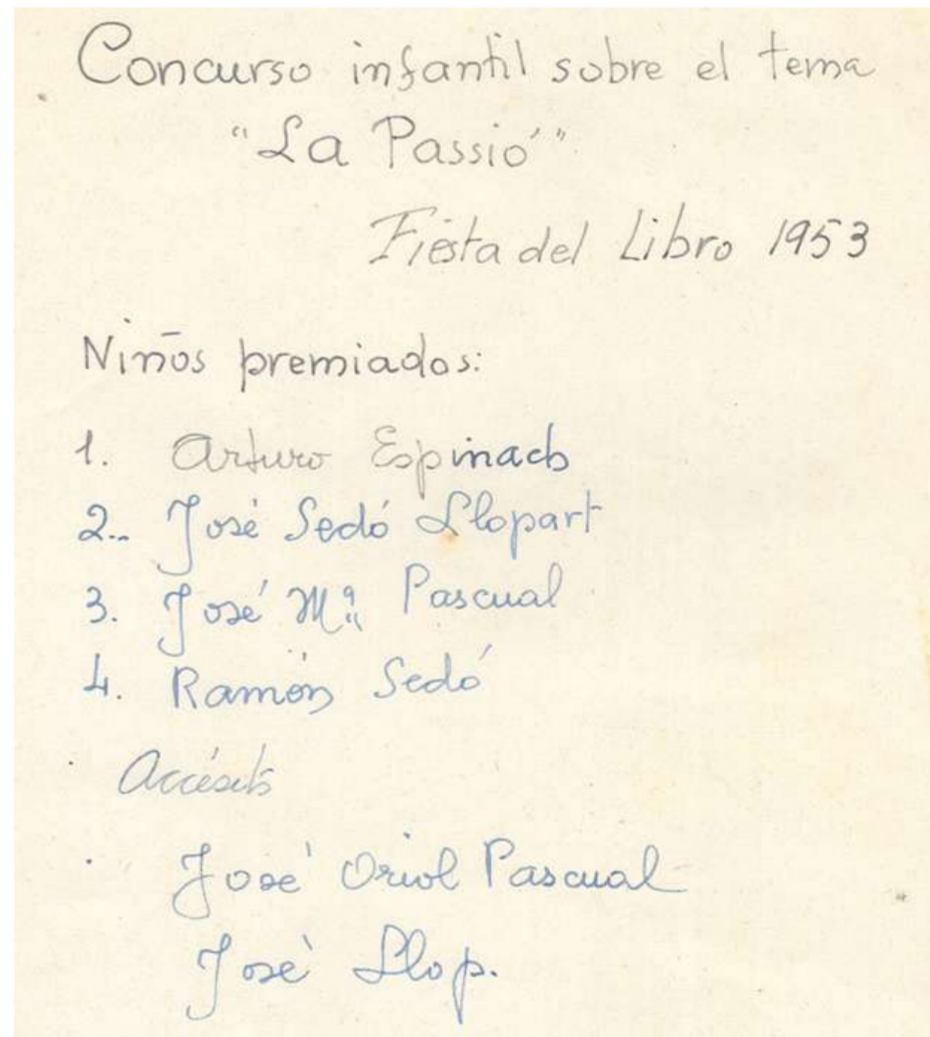 Concurso infantil sobre el tema
"La Passió"
Fiesta del Libro 1953
Niños premiados:
1. Arturo Espinach
2.. José Sedó Llopart
3. José Mª Pascual
4. Ramón Sedó
Accésits
José Oriol Pascual
José Llop.